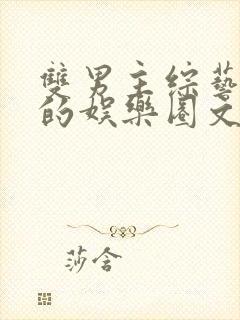 雙男主綜藝
的娛樂圈文
莎含